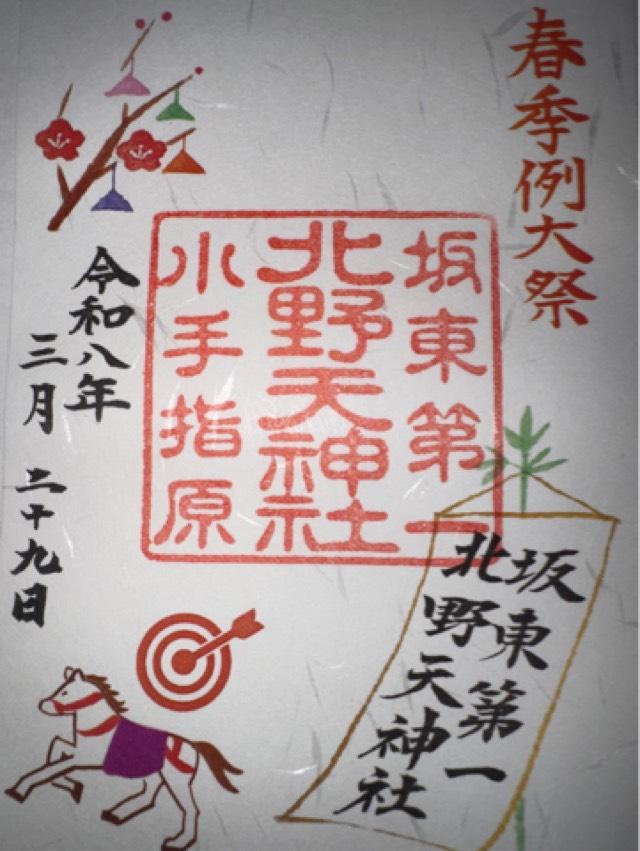 春季例大祭
坂東第一
北野天神社
小手指原
坂東第一
北野天神社
令和八年
三月 二十九日